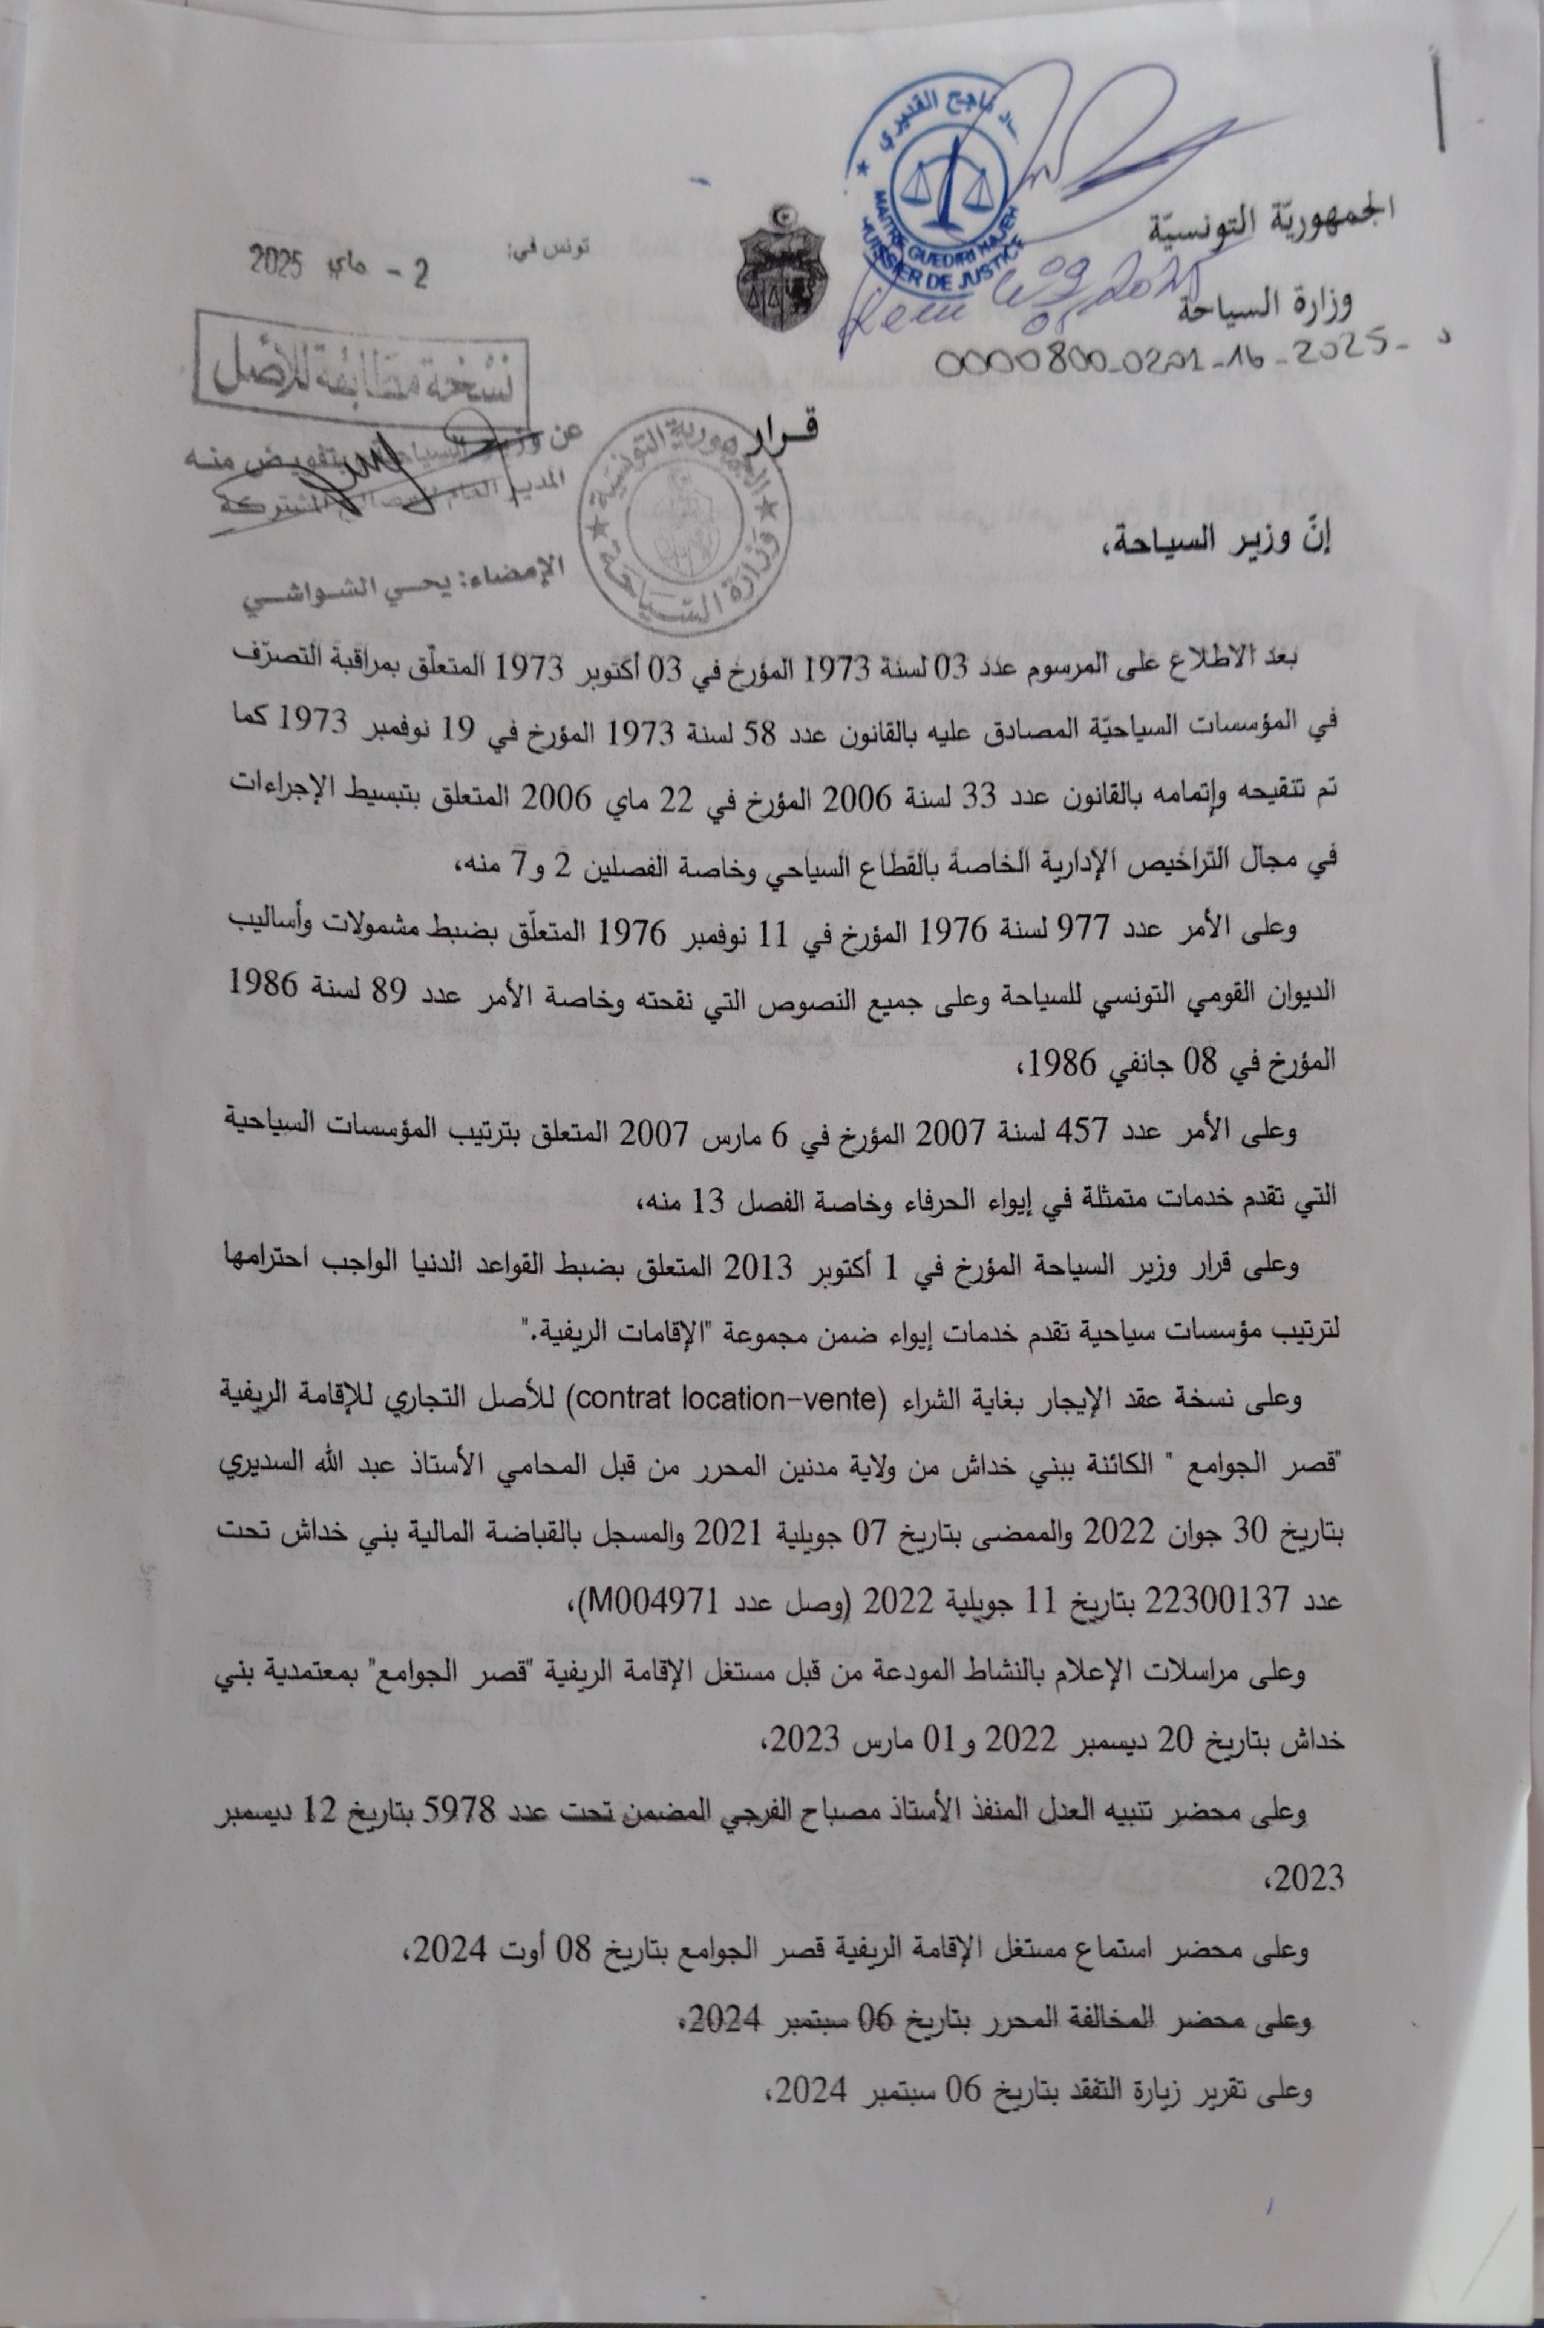 الجمهوريّة التونسيّة
وزارة السياحة
د - 2025-16-0201-0000800
تونس في:
2 - ماي 2025
ناجح القديري
MAITRE GUEDIRI HAJEH
HUISSIER DE JUSTICE
09/05/2025
نسخة مطابقة للأصل
عن وزير السياحة وبتفويض منه
المدير العام للمصالح المشتركة
الإمضاء: يحي الشواشي
الجمهورية التونسية
وزارة السياحة
قرار
إنّ وزير السياحة،
بعد الاطلاع على المرسوم عدد 03 لسنة 1973 المؤرخ في 03 أكتوبر 1973 المتعلّق بمراقبة التصرّف
في المؤسسات السياحيّة المصادق عليه بالقانون عدد 58 لسنة 1973 المؤرخ في 19 نوفمبر 1973 كما
تم تنقيحه وإتمامه بالقانون عدد 33 لسنة 2006 المؤرخ في 22 ماي 2006 المتعلق بتبسيط الإجراءات
في مجال التراخيص الإدارية الخاصة بالقطاع السياحي وخاصة الفصلين 2 و7 منه،
وعلى الأمر عدد 977 لسنة 1976 المؤرخ في 11 نوفمبر 1976 المتعلّق بضبط مشمولات وأساليب
الديوان القومي التونسي للسياحة وعلى جميع النصوص التي نقحته وخاصة الأمر عدد 89 لسنة 1986
المؤرخ في 08 جانفي 1986،
وعلى الأمر عدد 457 لسنة 2007 المؤرخ في 6 مارس 2007 المتعلق بترتيب المؤسسات السياحية
التي تقدم خدمات متمثلة في إيواء الحرفاء وخاصة الفصل 13 منه،
وعلى قرار وزير السياحة المؤرخ في 1 أكتوبر 2013 المتعلق بضبط القواعد الدنيا الواجب احترامها
لترتيب مؤسسات سياحية تقدم خدمات إيواء ضمن مجموعة "الإقامات الريفية."
وعلى نسخة عقد الإيجار بغاية الشراء (contrat location-vente) للأصل التجاري للإقامة الريفية
"قصر الجوامع " الكائنة ببني خداش من ولاية مدنين المحرر من قبل المحامي الأستاذ عبد الله السديري
بتاريخ 30 جوان 2022 والممضى بتاريخ 07 جويلية 2021 والمسجل بالقباضة المالية بني خداش تحت
عدد 22300137 بتاريخ 11 جويلية 2022 (وصل عدد M004971)،
وعلى مراسلات الإعلام بالنشاط المودعة من قبل مستغل الإقامة الريفية "قصر الجوامع" بمعتمدية بني
خداش بتاريخ 20 ديسمبر 2022 و01 مارس 2023،
وعلى محضر تنبيه العدل المنفذ الأستاذ مصباح الفرجي المضمن تحت عدد 5978 بتاريخ 12 ديسمبر
2023،
وعلى محضر استماع مستغل الإقامة الريفية قصر الجوامع بتاريخ 08 أوت 2024،
وعلى محضر المخالفة المحرر بتاريخ 06 سبتمبر 2024،
وعلى تقرير زيارة التفقد بتاريخ 06 سبتمبر 2024،